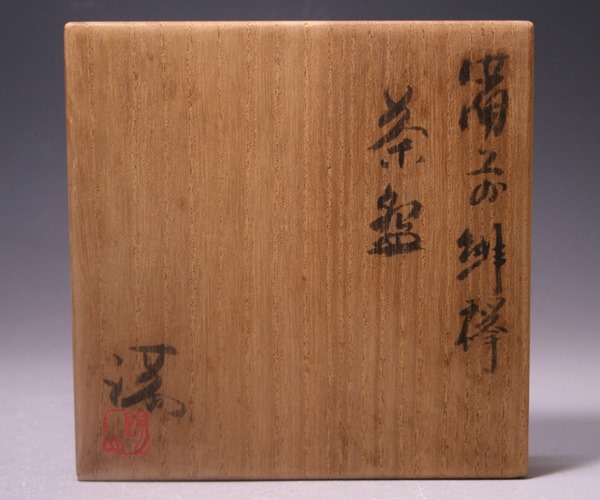 備前緋襷
茶盌